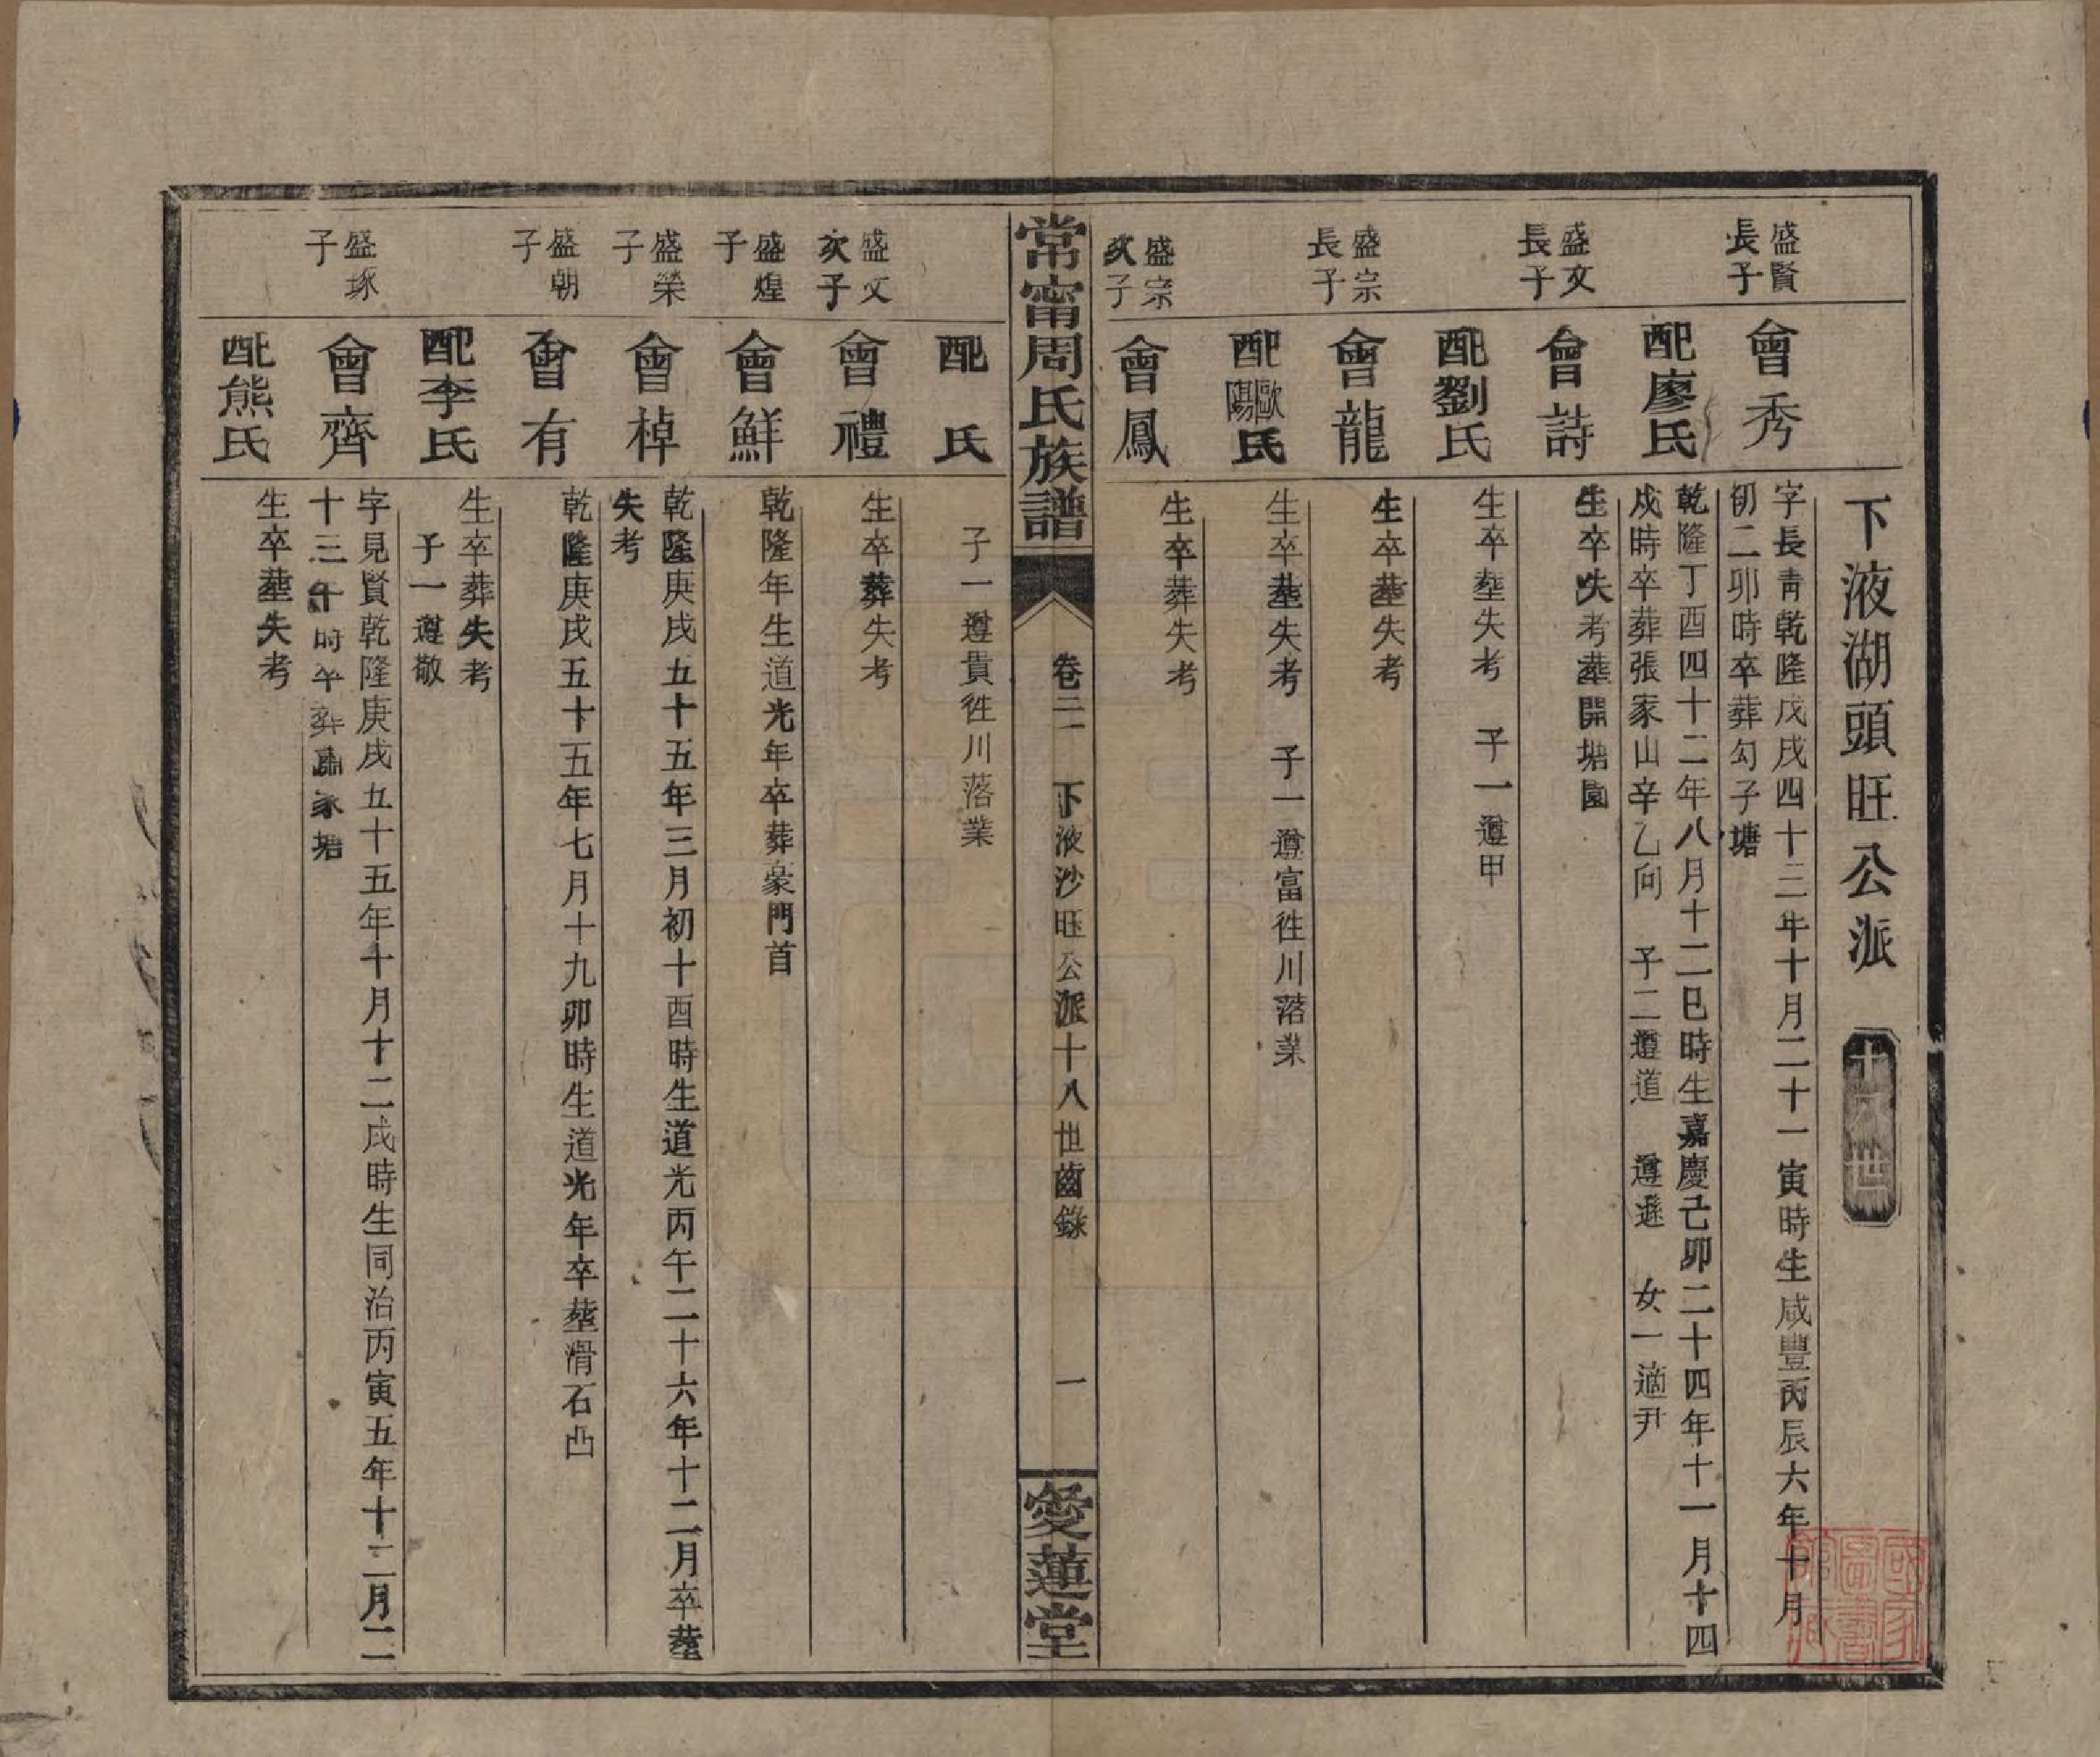 下液湖頭旺公派 十八世
盛賢長子
會秀
字長青乾隆戊戌四十三年十月二十一寅時生咸豐丙辰六年十月
初二卯時卒葬勾子塘
配廖氏
乾隆丁酉四十二年八月十二巳時生嘉慶己卯二十四年十一月十四
戌時卒葬張家山辛乙向 子二遵道 遵遜 女一適尹
盛文長子
會詩
生卒失考葬開塘園
配劉氏
生卒塟失考 子一遵甲
盛宗長子
會龍
生卒塟失考
配歐陽氏
生卒塟失考 子一遵富徃川落業
盛宗次子
會鳳
生卒葬失考
常甯周氏族譜 卷二 下液沙旺公派十八世齒錄 一 愛蓮堂
配 氏
子一遵貴徃川落業
盛文次子
會禮
生卒葬失考
盛煌子
會鮮
乾隆年生道光年卒葬蒙門首
盛榮子
會棹
乾隆庚戌五十五年三月初十酉時生道光丙午二十六年十二月卒塟
失考
盛朝子
會有
乾隆庚戌五十五年七月十九卯時生道光年卒塟滑石凸
配李氏
生卒葬失考
子一遵敬
盛琢子
會齊
字見賢乾隆庚戌五十五年十月十二戌時生同治丙寅五年十二月二
十三午時卒葬家塘
配熊氏
生卒塟失考
國家圖書館藏